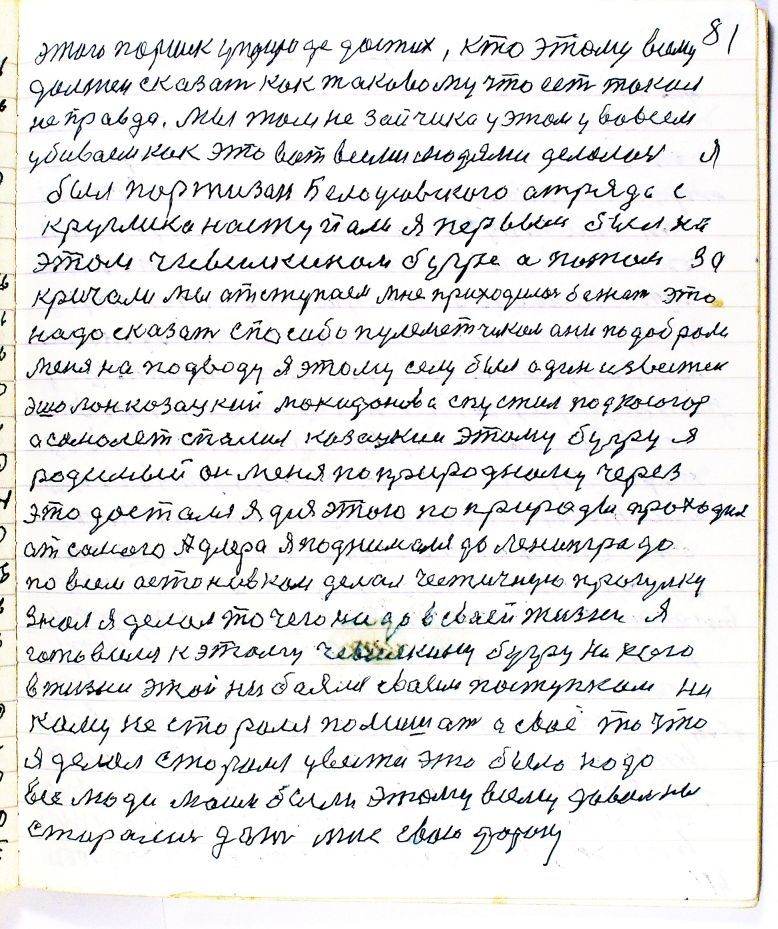 81
этого поршек уприроде достих, кто этому всему
должен сказат как таковому что ест такая
не правда. мы там не зайчика у этом у вовсем
убиваем как это вот всеми людями делалов я
был портизан Белоусовского отряда с
круглика наступали я первым был на
этом чивилкином бугре а потом за
кричали мы атступаем мне приходилос бежат это
надо сказат спосибо пулеметчикам они подобрали
меня на подводу я этому селу был один известен
эшолон козацкий макидонова спустил подкосогор
а самолет спалил козацкии этому бугру я
родимый он меня поприродному через
это достался я для этого поприроды проходил
ат самого Адлера я поднимался до Ленинградо
по всем астоновкам делал честичную прогулку
знал я делал то чего надо в своей жизни я
готовился к этому чивилкину бугру никого
в жизни этой ни боялся своем поступком ни
кому не старался помишат а своё то что
я делал старался увести это было надо
все люди маи были этому всему довольны
старались дать мне свою форму